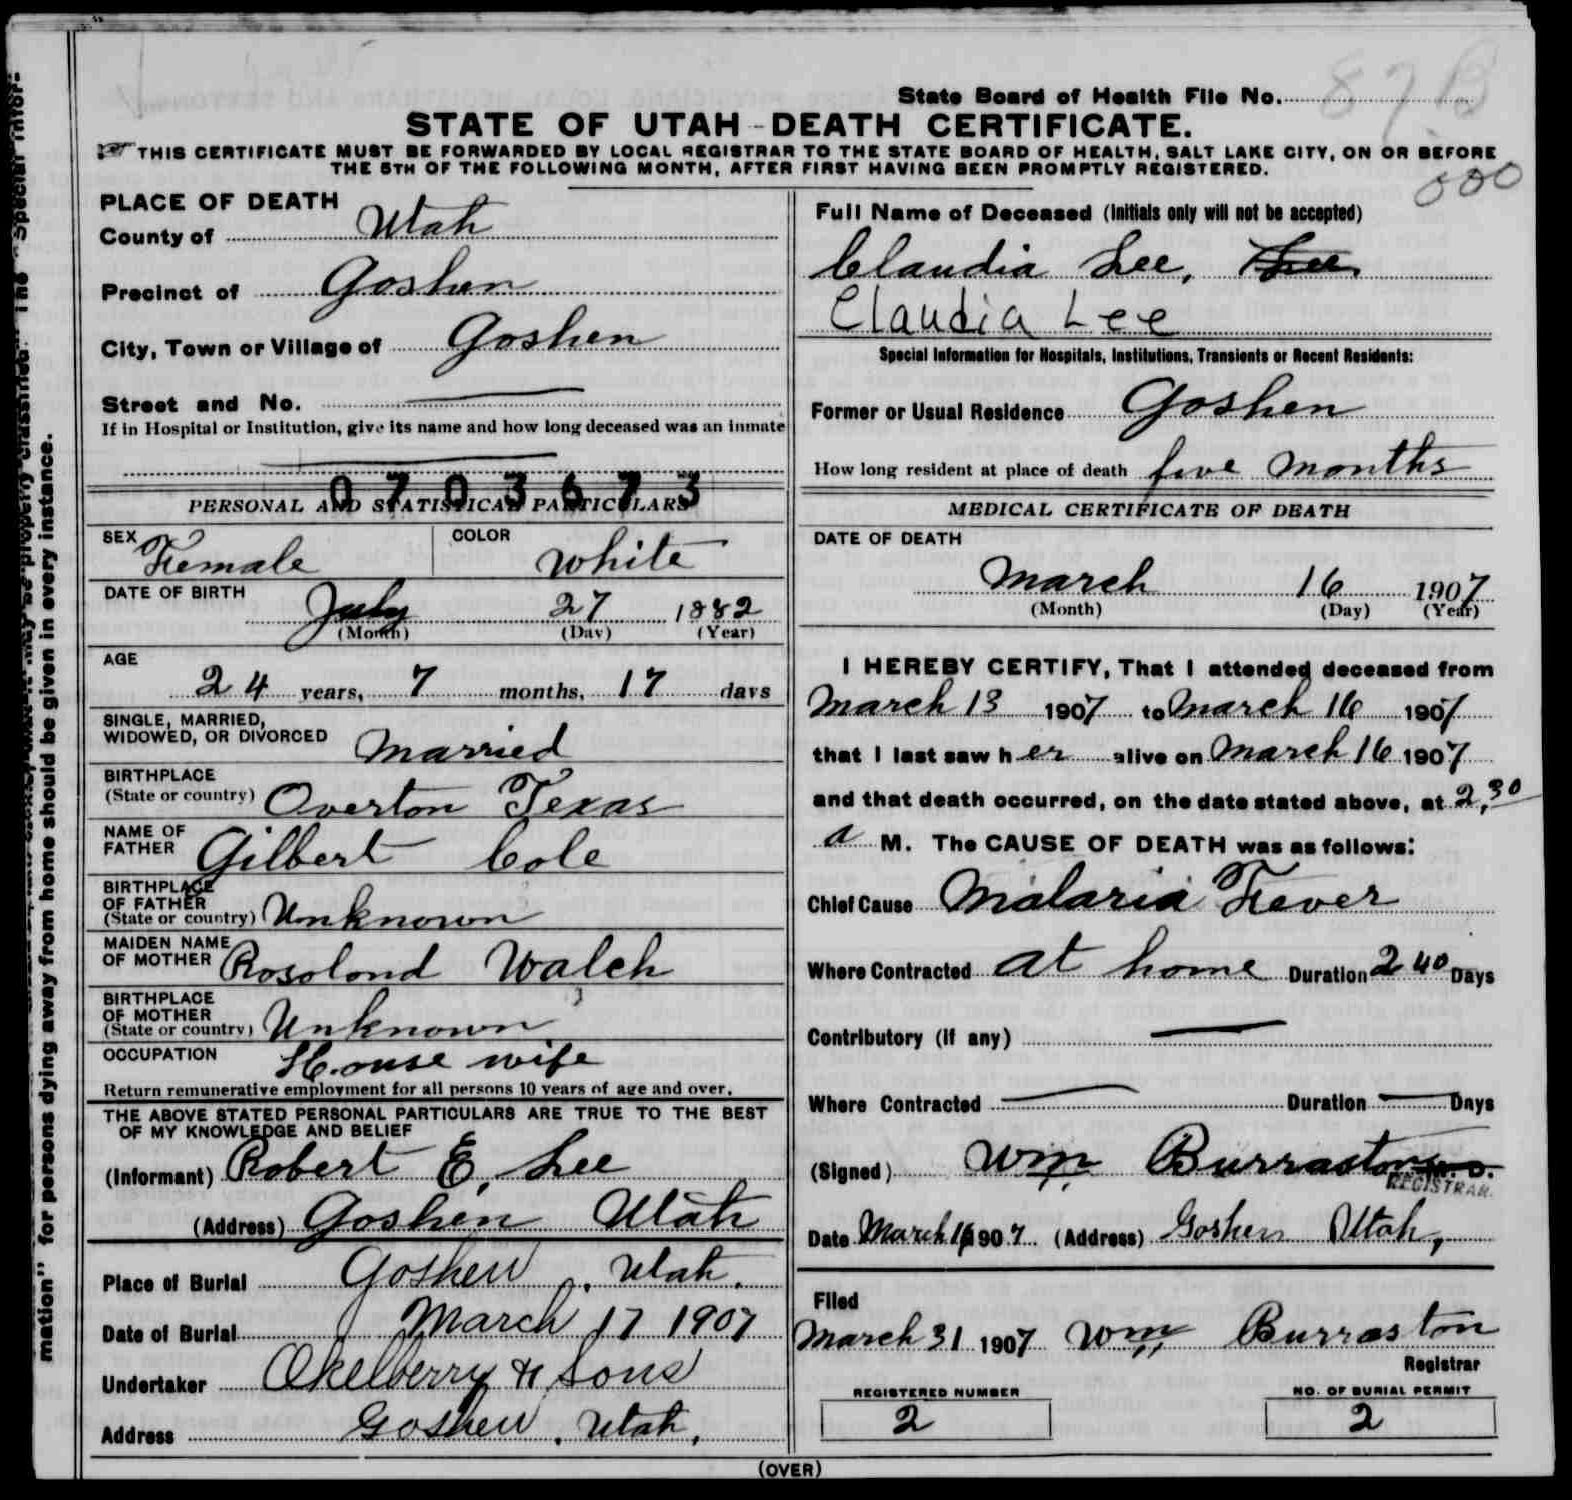 State Board of Health File No. 87 B
STATE OF UTAH - DEATH CERTIFICATE.
THIS CERTIFICATE MUST BE FORWARDED BY LOCAL REGISTRAR TO THE STATE BOARD OF HEALTH, SALT LAKE CITY, ON OR BEFORE
THE 5TH OF THE FOLLOWING MONTH, AFTER FIRST HAVING BEEN PROMPTLY REGISTERED.
000
PLACE OF DEATH
County of Utah
Precinct of Goshen
City, Town or Village of Goshen
Street and No.
If in Hospital or Institution, give its name and how long deceased was an inmate
0703673
PERSONAL AND STATISTICAL PARTICULARS
SEX Female COLOR White
DATE OF BIRTH
July 27 1882
(Month) (Day) (Year)
AGE
24 years, 7 months, 17 days
SINGLE, MARRIED,
WIDOWED, OR DIVORCED Married
BIRTHPLACE
(State or country) Overton Texas
NAME OF
FATHER Gilbert Cole
BIRTHPLACE
OF FATHER
(State or country) Unknown
MAIDEN NAME
OF MOTHER Rosolond Walch
BIRTHPLACE
OF MOTHER
(State or country) Unknown
OCCUPATION House wife
Return remunerative employment for all persons 10 years of age and over.
THE ABOVE STATED PERSONAL PARTICULARS ARE TRUE TO THE BEST
OF MY KNOWLEDGE AND BELIEF
(Informant) Robert E. Lee
(Address) Goshen Utah
Place of Burial Goshen, Utah.
Date of Burial March 17 1907
Undertaker Okelberry & Sons
Address Goshen, Utah.
Full Name of Deceased (Initials only will not be accepted)
Claudia Lee, Lee
Claudia Lee
Special Information for Hospitals, Institutions, Transients or Recent Residents:
Former or Usual Residence Goshen
How long resident at place of death five months
MEDICAL CERTIFICATE OF DEATH
DATE OF DEATH
March 16 1907
(Month) (Day) (Year)
I HEREBY CERTIFY, That I attended deceased from
March 13 1907 to March 16 1907
that I last saw her alive on March 16 1907
and that death occurred, on the date stated above, at 2.30
a M. The CAUSE OF DEATH was as follows:
Chief Cause Malaria Fever
Where Contracted at home Duration 240 Days
Contributory (if any)
Where Contracted Duration Days
(Signed) Wm Burraston M.D.
REGISTRAR.
Date March 16 1907 (Address) Goshen Utah,
Filed
March 31 1907 Wm Burraston
Registrar
REGISTERED NUMBER
2
NO. OF BURIAL PERMIT
2
(OVER)
mation" for persons dying away from home should be given in every instance.